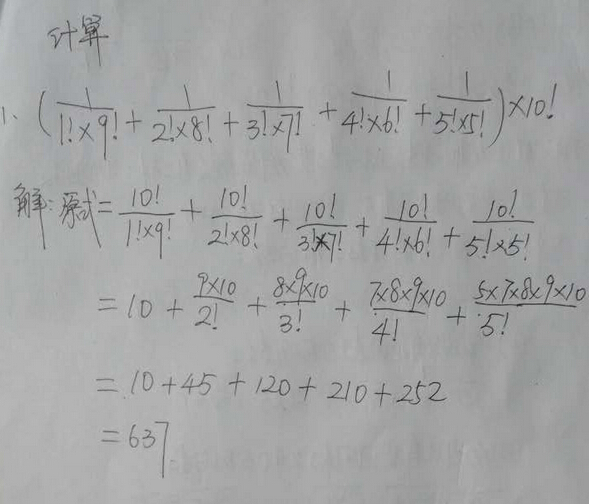 计算
1、(1/1!×9! + 1/2!×8! + 1/3!×7! + 1/4!×6! + 1/5!×5!)×10!
解:原式= 10!/1!×9! + 10!/2!×8! + 10!/3!×7! + 10!/4!×6! + 10!/5!×5!
= 10 + 9×10/2! + 8×9×10/3! + 7×8×9×10/4! + 5×7×8×9×10/5!
= 10+45+120+210+252
= 637